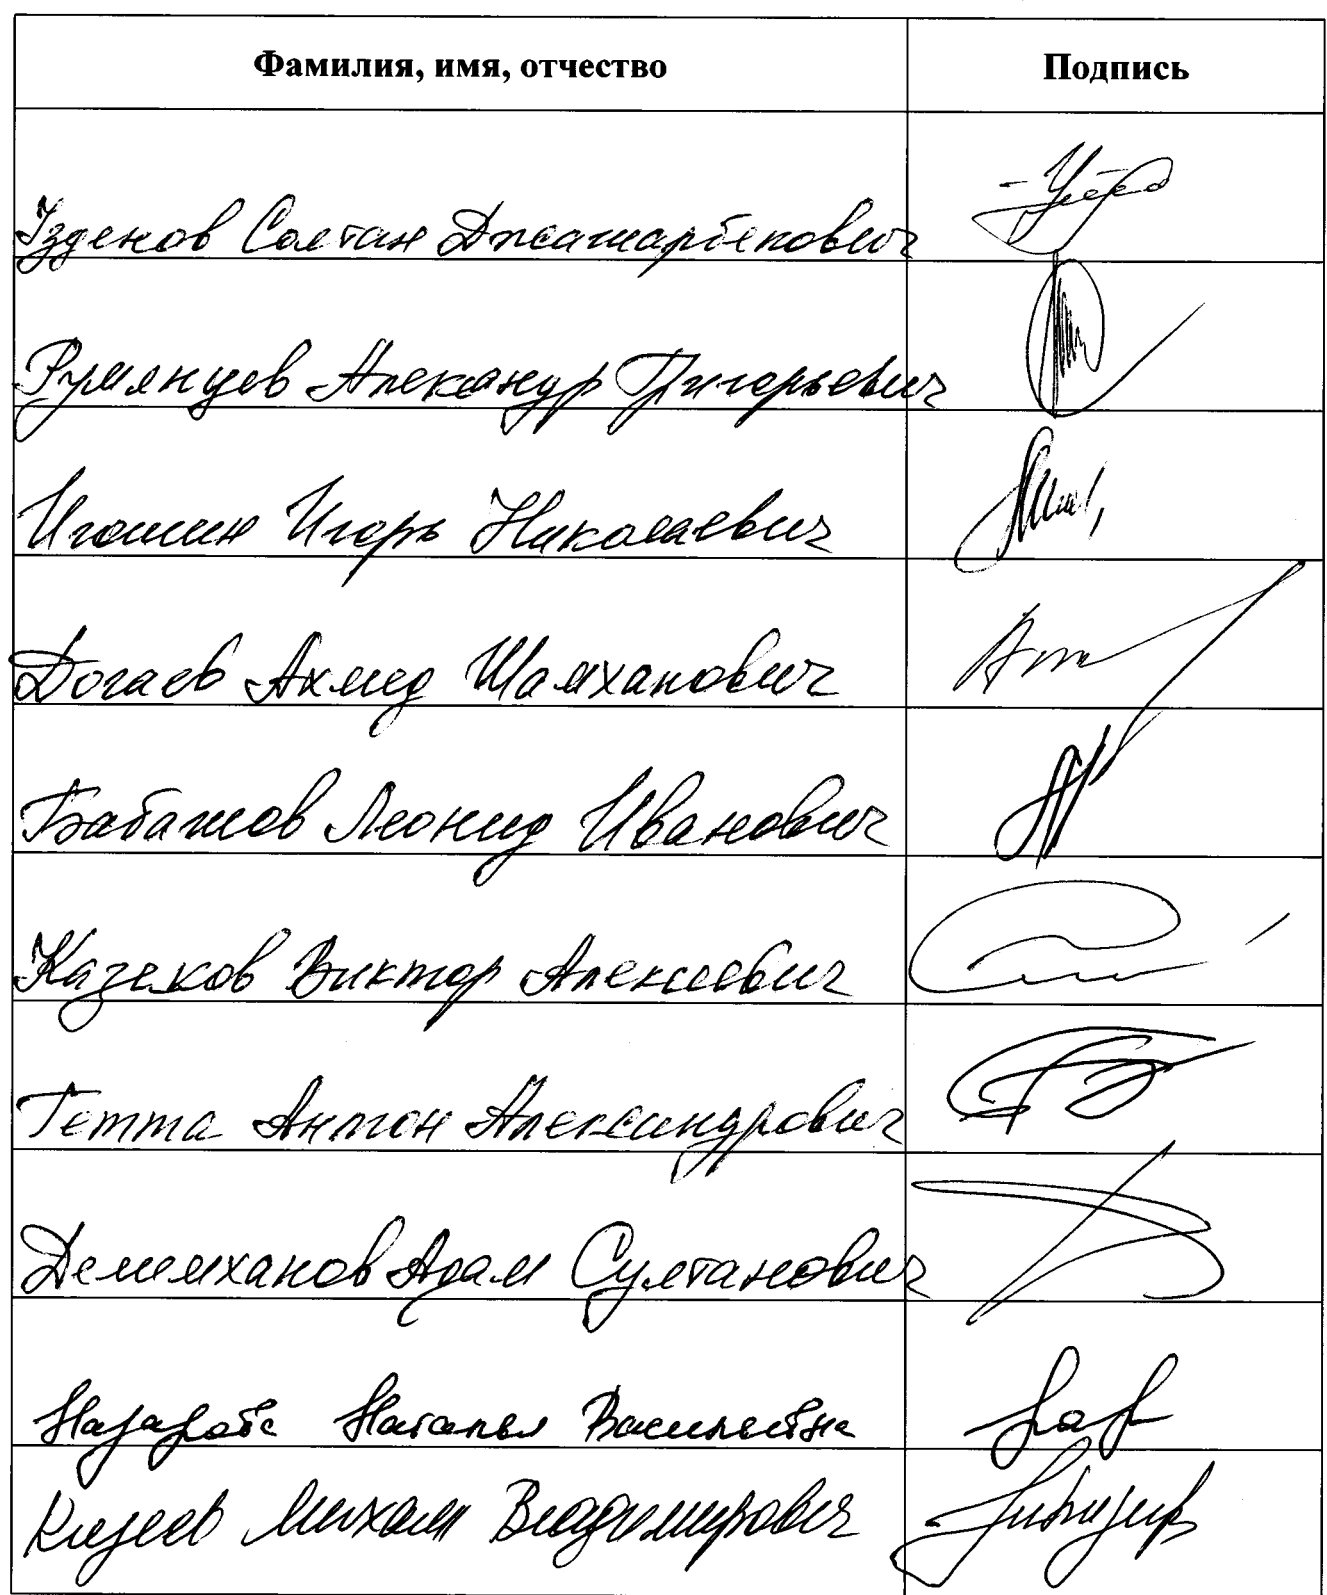 Фамилия, имя, отчество Подпись
Узденов Солтан Джашарбекович
Румянцев Александр Григорьевич
Игошин Игорь Николаевич
Догаев Ахмед Шамханович
Бабашов Леонид Иванович
Казаков Виктор Алексеевич
Гетта Антон Александрович
Делимханов Адам Султанович
Назарова Наталья Васильевна
Кизеев Михаил Владимирович